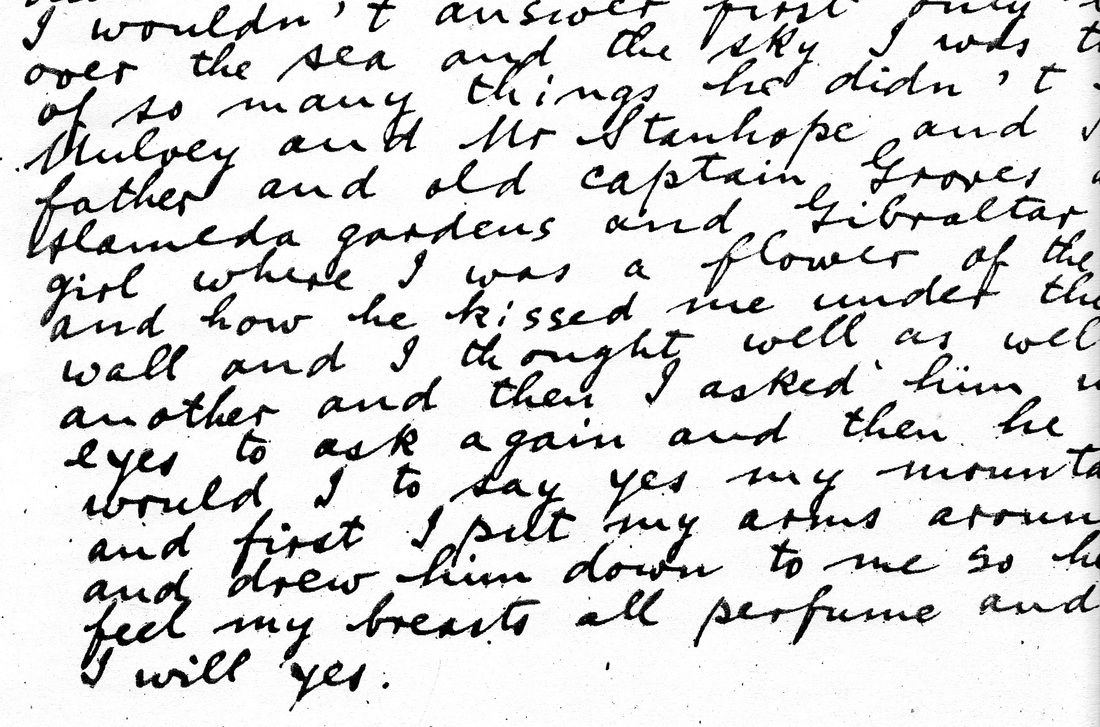 I wouldn't answer first only
over the sea and the sky I was
of so many things he didn't
Mulvey and Mr Stanhope and
father and old captain Groves
Alameda gardens and Gibraltar
girl where I was a flower of the
and how he kissed me under the
wall and I thought well as wel
another and then I asked him
eyes to ask again and then he
would I to say yes my mounta
and first I put my arms aroun
and drew him down to me so he
feel my breasts all perfume and
I will yes.